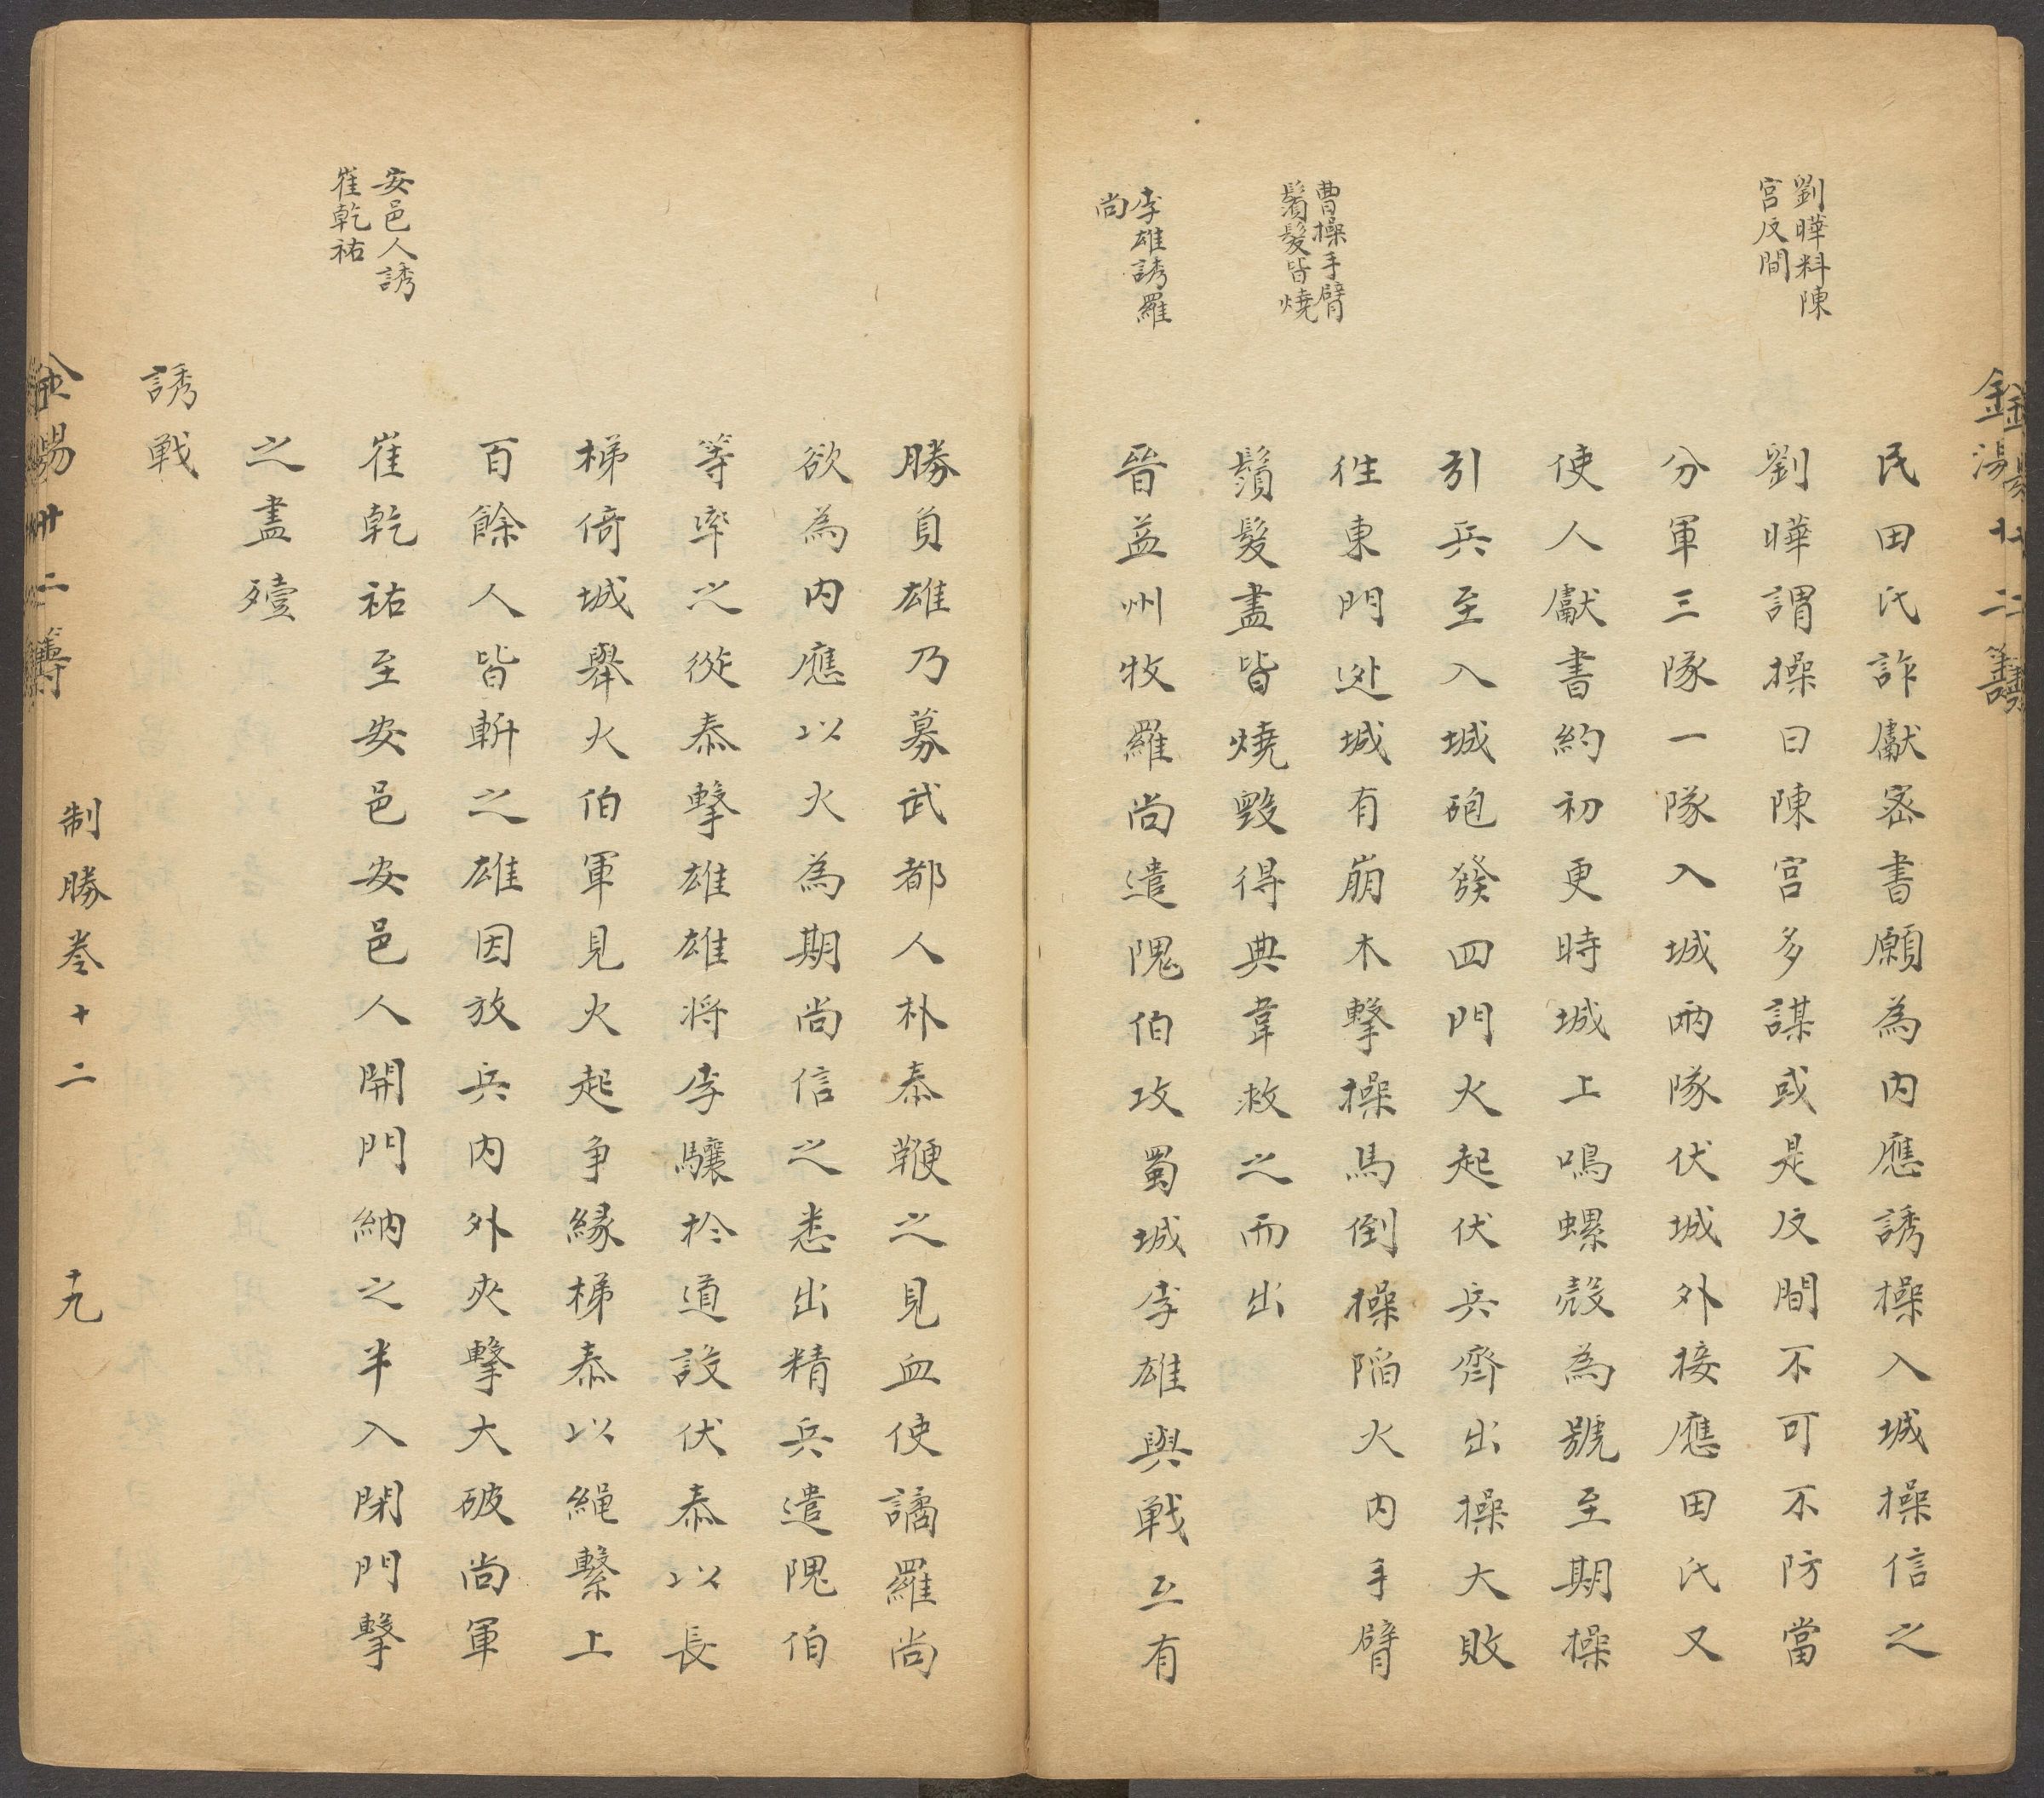 劉曄料陳
宫反間
曹操手臂
鬚髮皆燒
李雄誘羅
尚
民田氏詐獻宻書願為内應誘操入城操信之
劉曄謂操曰陳宫多謀或是反間不可不防當
分軍三隊一隊入城兩隊伏城外接應田氏又
使人獻書約初更時城上鳴螺殻為號至期操
引兵至入城砲發四門火起伏兵齊出操大敗
徃東門迯城有崩木擊操馬倒操陷火内手臂
鬚髮盡皆燒毀得典韋救之而出
晉益州牧羅尚遣隗伯攻蜀城李雄與戰互有
安邑人誘
崔乾祐
勝負雄乃募武都人朴泰鞭之見血使譎羅尚
欲為内應以火為期尚信之悉出精兵遣隗伯
等率之從泰擊雄雄將李驤扵道設伏泰以長
梯倚城舉火伯軍見火起争緣梯泰以繩繫上
百餘人皆斬之雄因放兵内外夾擊大破尚軍
崔乾祐至安邑安邑人開門納之半入閉門擊
之盡殪
誘戰
制勝卷十二
十九